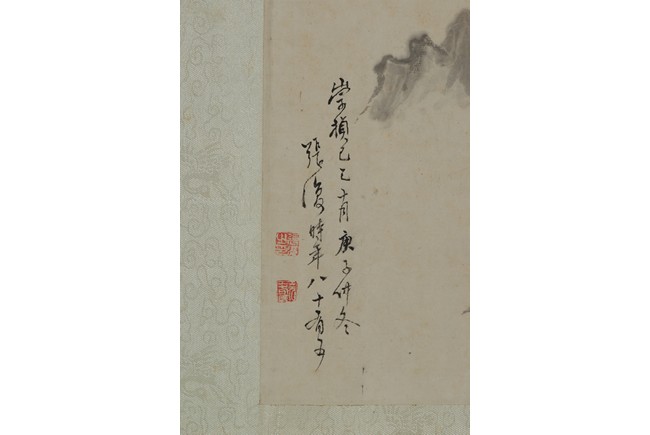 崇禎己巳十月庚子冬
張復時年八十有五